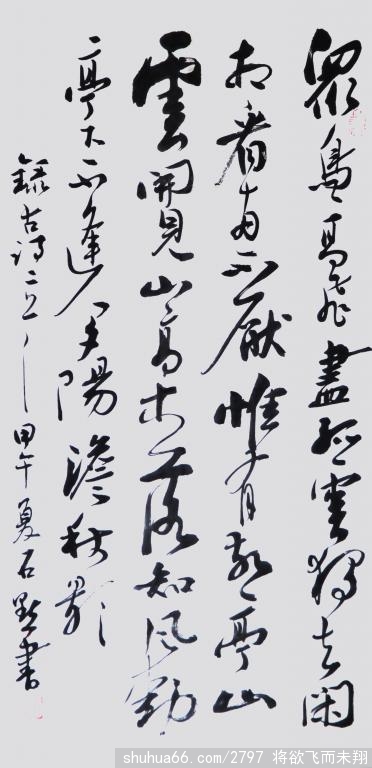 眾鳥高飛盡孤雲獨去閑
相看两不厭惟有敬亭山
雲開見山高木落知風勁
亭下不逢人夕陽澹秋影
錄古詩二 甲午夏石默書
shuhua66.com/2797 将欲飞而未翔